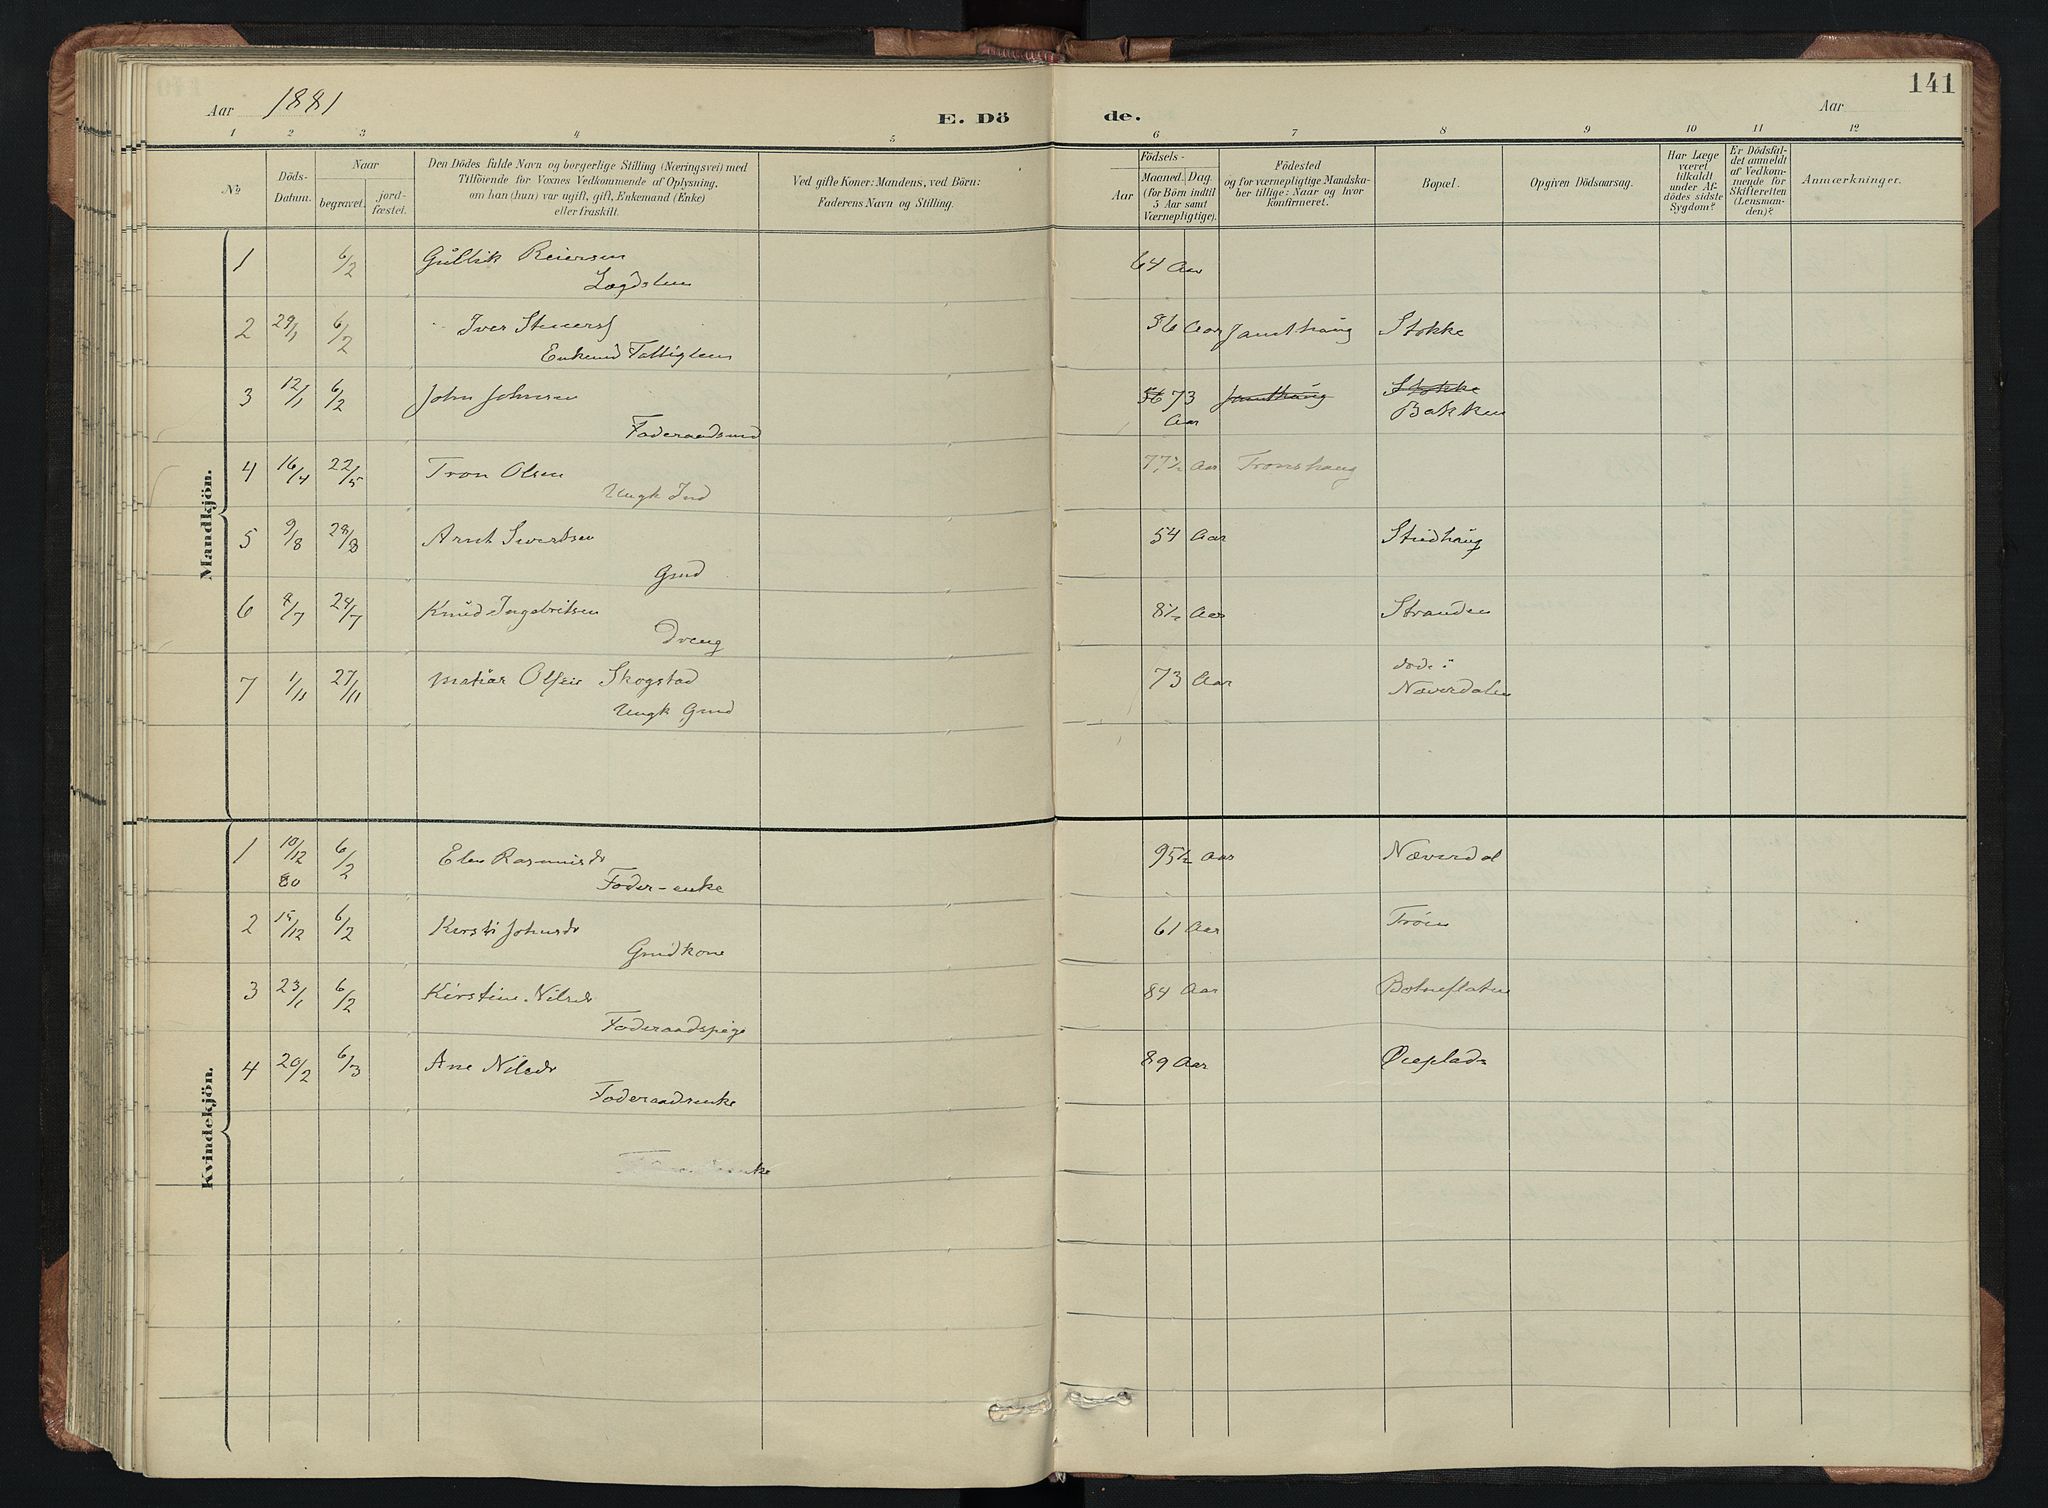 141
Aar 1881
E. Dö
de.
Aar
1 2 3 4 5 6 7 8 9 10 11 12
No
Döds-
Datum.
Naar
begravet.
jord-
fæstet.
Den Dödes fulde Navn og borgerlige Stilling (Næringsvei) med
Tilföiende for Voxnes Vedkommende af Oplysning,
om han (hun) var ugift, gift, Enkemand (Enke)
eller fraskilt.
Ved gifte Koner: Mandens, ved Börn:
Faderens Navn og Stilling.
Födsels-
Aar
Maaned. Dag.
(for Börn indtil
5 Aar samt
Værnepligtige).
Födested
og for værnepligtige Mandska-
ber tillige: Naar og hvor
konfirmeret.
Bopæl.
Opgiven Dödsaarsag.
Har Læge
været
tilkaldt
under Af-
dödes sidste
Sygdom?
Er Dödsfal-
det anmeldt
af Vedkom-
mende for
Skifteretten
(Lensman-
den)?
Anmærkninger.
Mandkjön.
1 6/2 Gullik Reiersen 64 Aar
Lægdslem
2 29/1 6/2 Iver 86 Aar Jamthaug Stokke
Enkemd Fattiglem
3 12/1 6/2 John Johnsen 56 73 Jamthaug Stokke
Aar Bakken
Foderaadsmd
4 16/4 22/5 Tron Olsen 77½ Aar Tronshaug
Ungk Ind
5 9/8 28/8 Arnt Sivertsen 54 Aar Studhaug
Gmd
6 8/7 24/7 Knud Ingebritsen 8½ Aar Stranden
Dreng
7 1/11 27/11 Olsen Skogstad 73 Aar död i
Næverdalen
Ungk Gmd
Kvindekjön.
1 10/12 6/2 Elen Rasmusdr 95½ Aar Næverdal
80
Foder-enke
2 15/12 6/2 Kirsti Johnsdr 61 Aar Tröen
Gmdkone
3 23/1 6/2 Kirstine Nilsdr 84 Aar Botneflaten
Foderaadspige
4 20/2 6/3 Ane Nilsdr 89 Aar Øieplads
Foderaadsenke